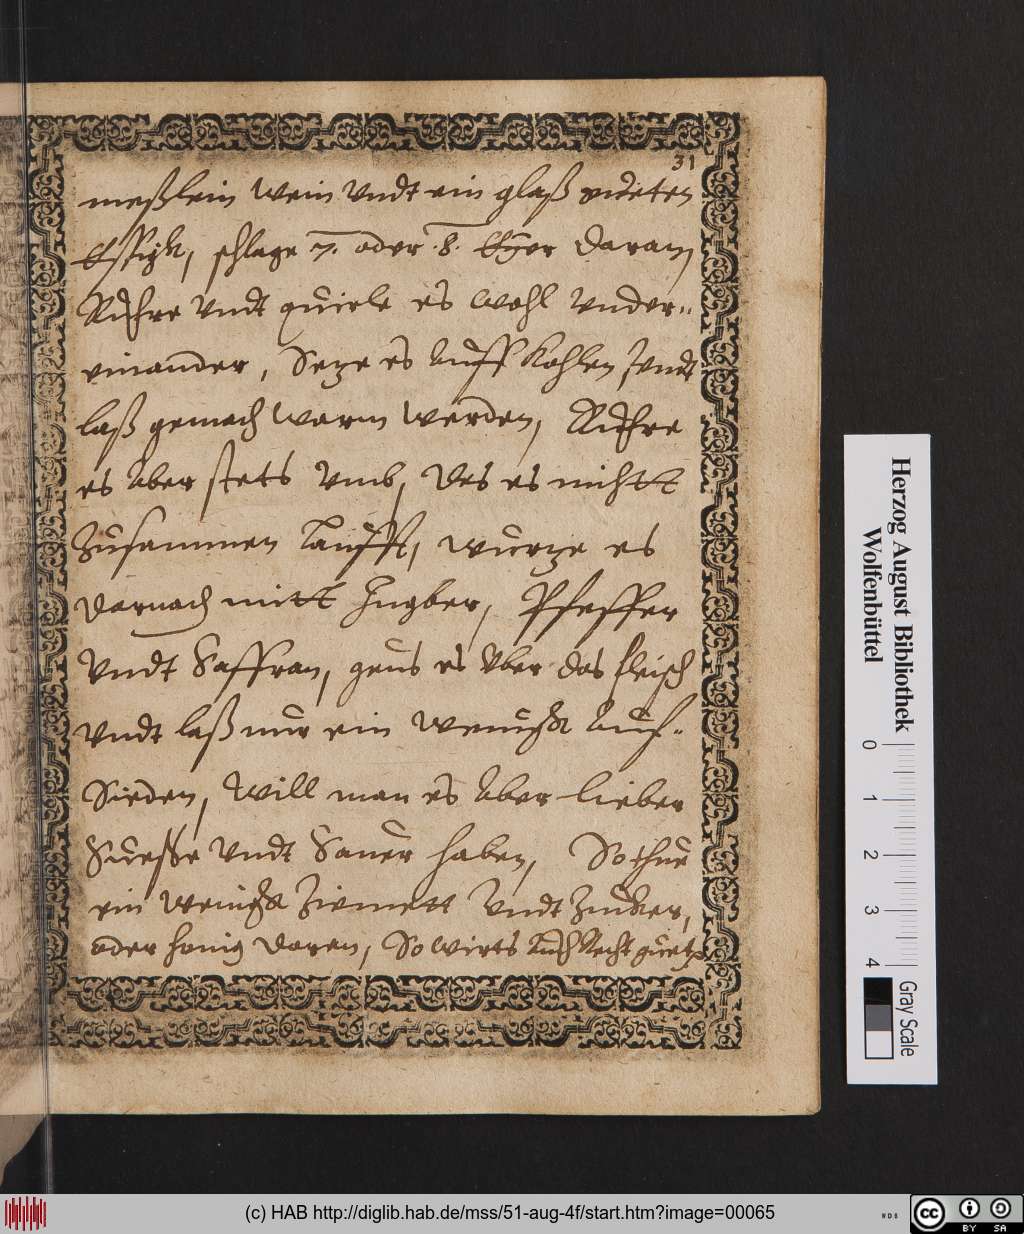 31
meßlein wein Vndt ein glaß gueten
Essigk, schlage .7. oder .8. Eÿer daran,
Rühre Vndt quirle es wohl Vnder-
einander, Seze es auff kohlen, Vndt
laß gemach warm werden, Rühre
es aber stets Vmb, das es nichtt
zusammen laufft, wurze es
darnach mitt Ingber, Pfeffer
Vndt Saffran, geus es Vber das fleisch
Vndt laß nur ein wenigk auf-
Sieden, Will man es aber lieber
Suesse Vndt Sauer haben, So thue
ein wenigk Zimmett Vndt Zucker,
oder honig daran, So wirts auch Recht
Herzog August Bibliothek
Wolfenbüttel
0 1 2 3 4
Gray Scale
(c) HAB http://diglib.hab.de/mss/51-aug-4f/start.htm?image=00065
WDB
cc BY SA